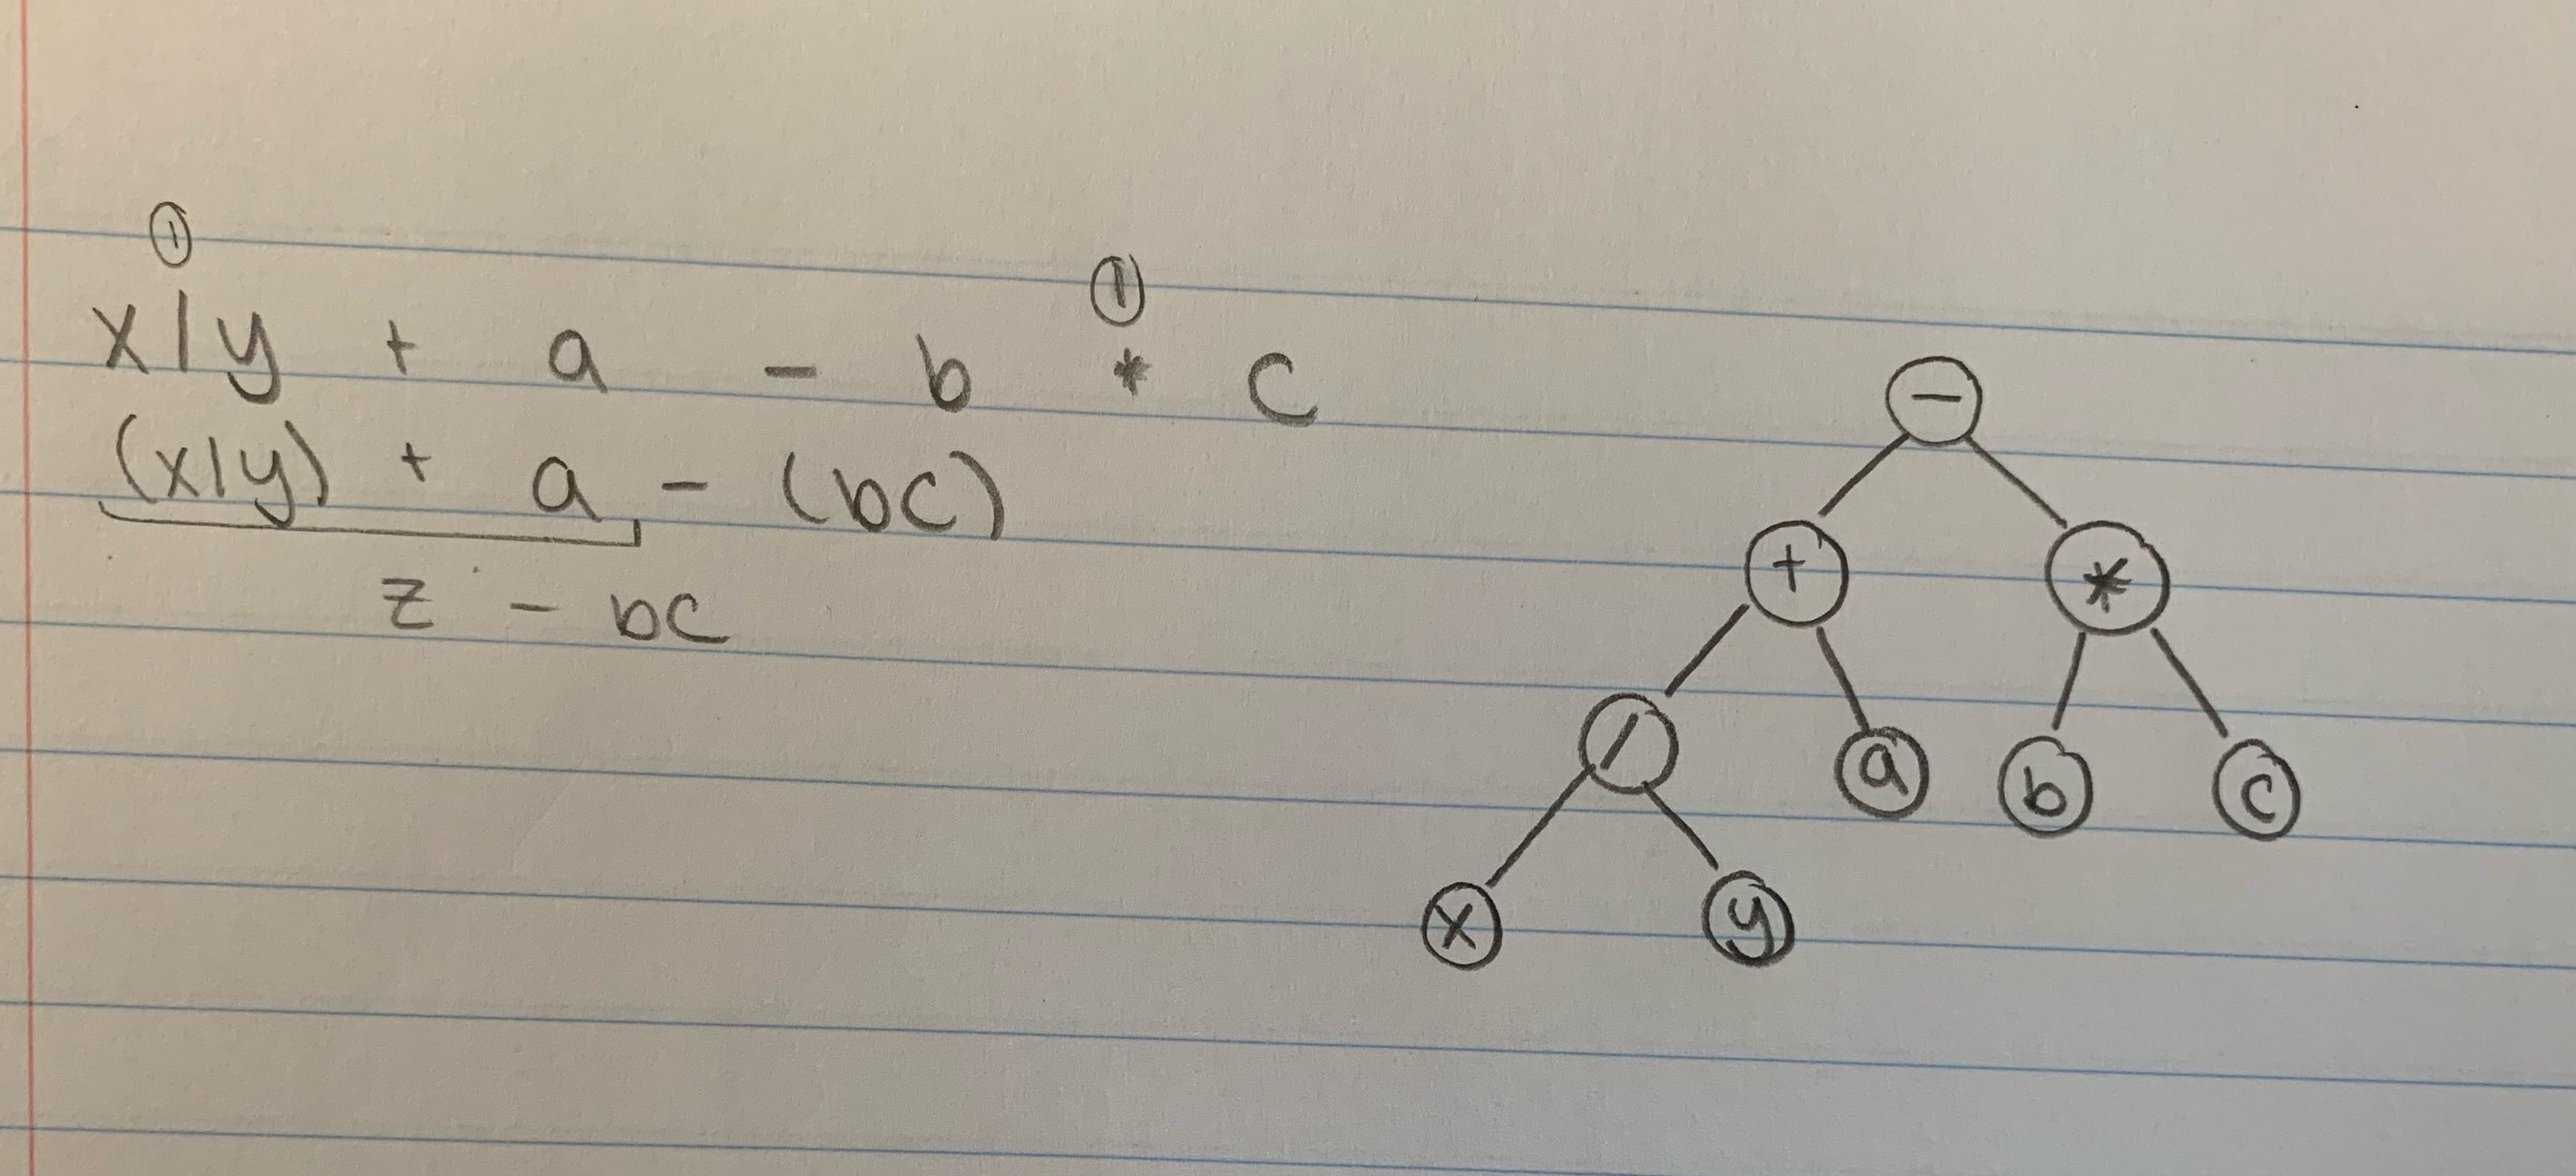 ① ①
x/y + a - b * c
(x/y) + a - (bc)
z - bc
-
+ *
/ a b c
x y